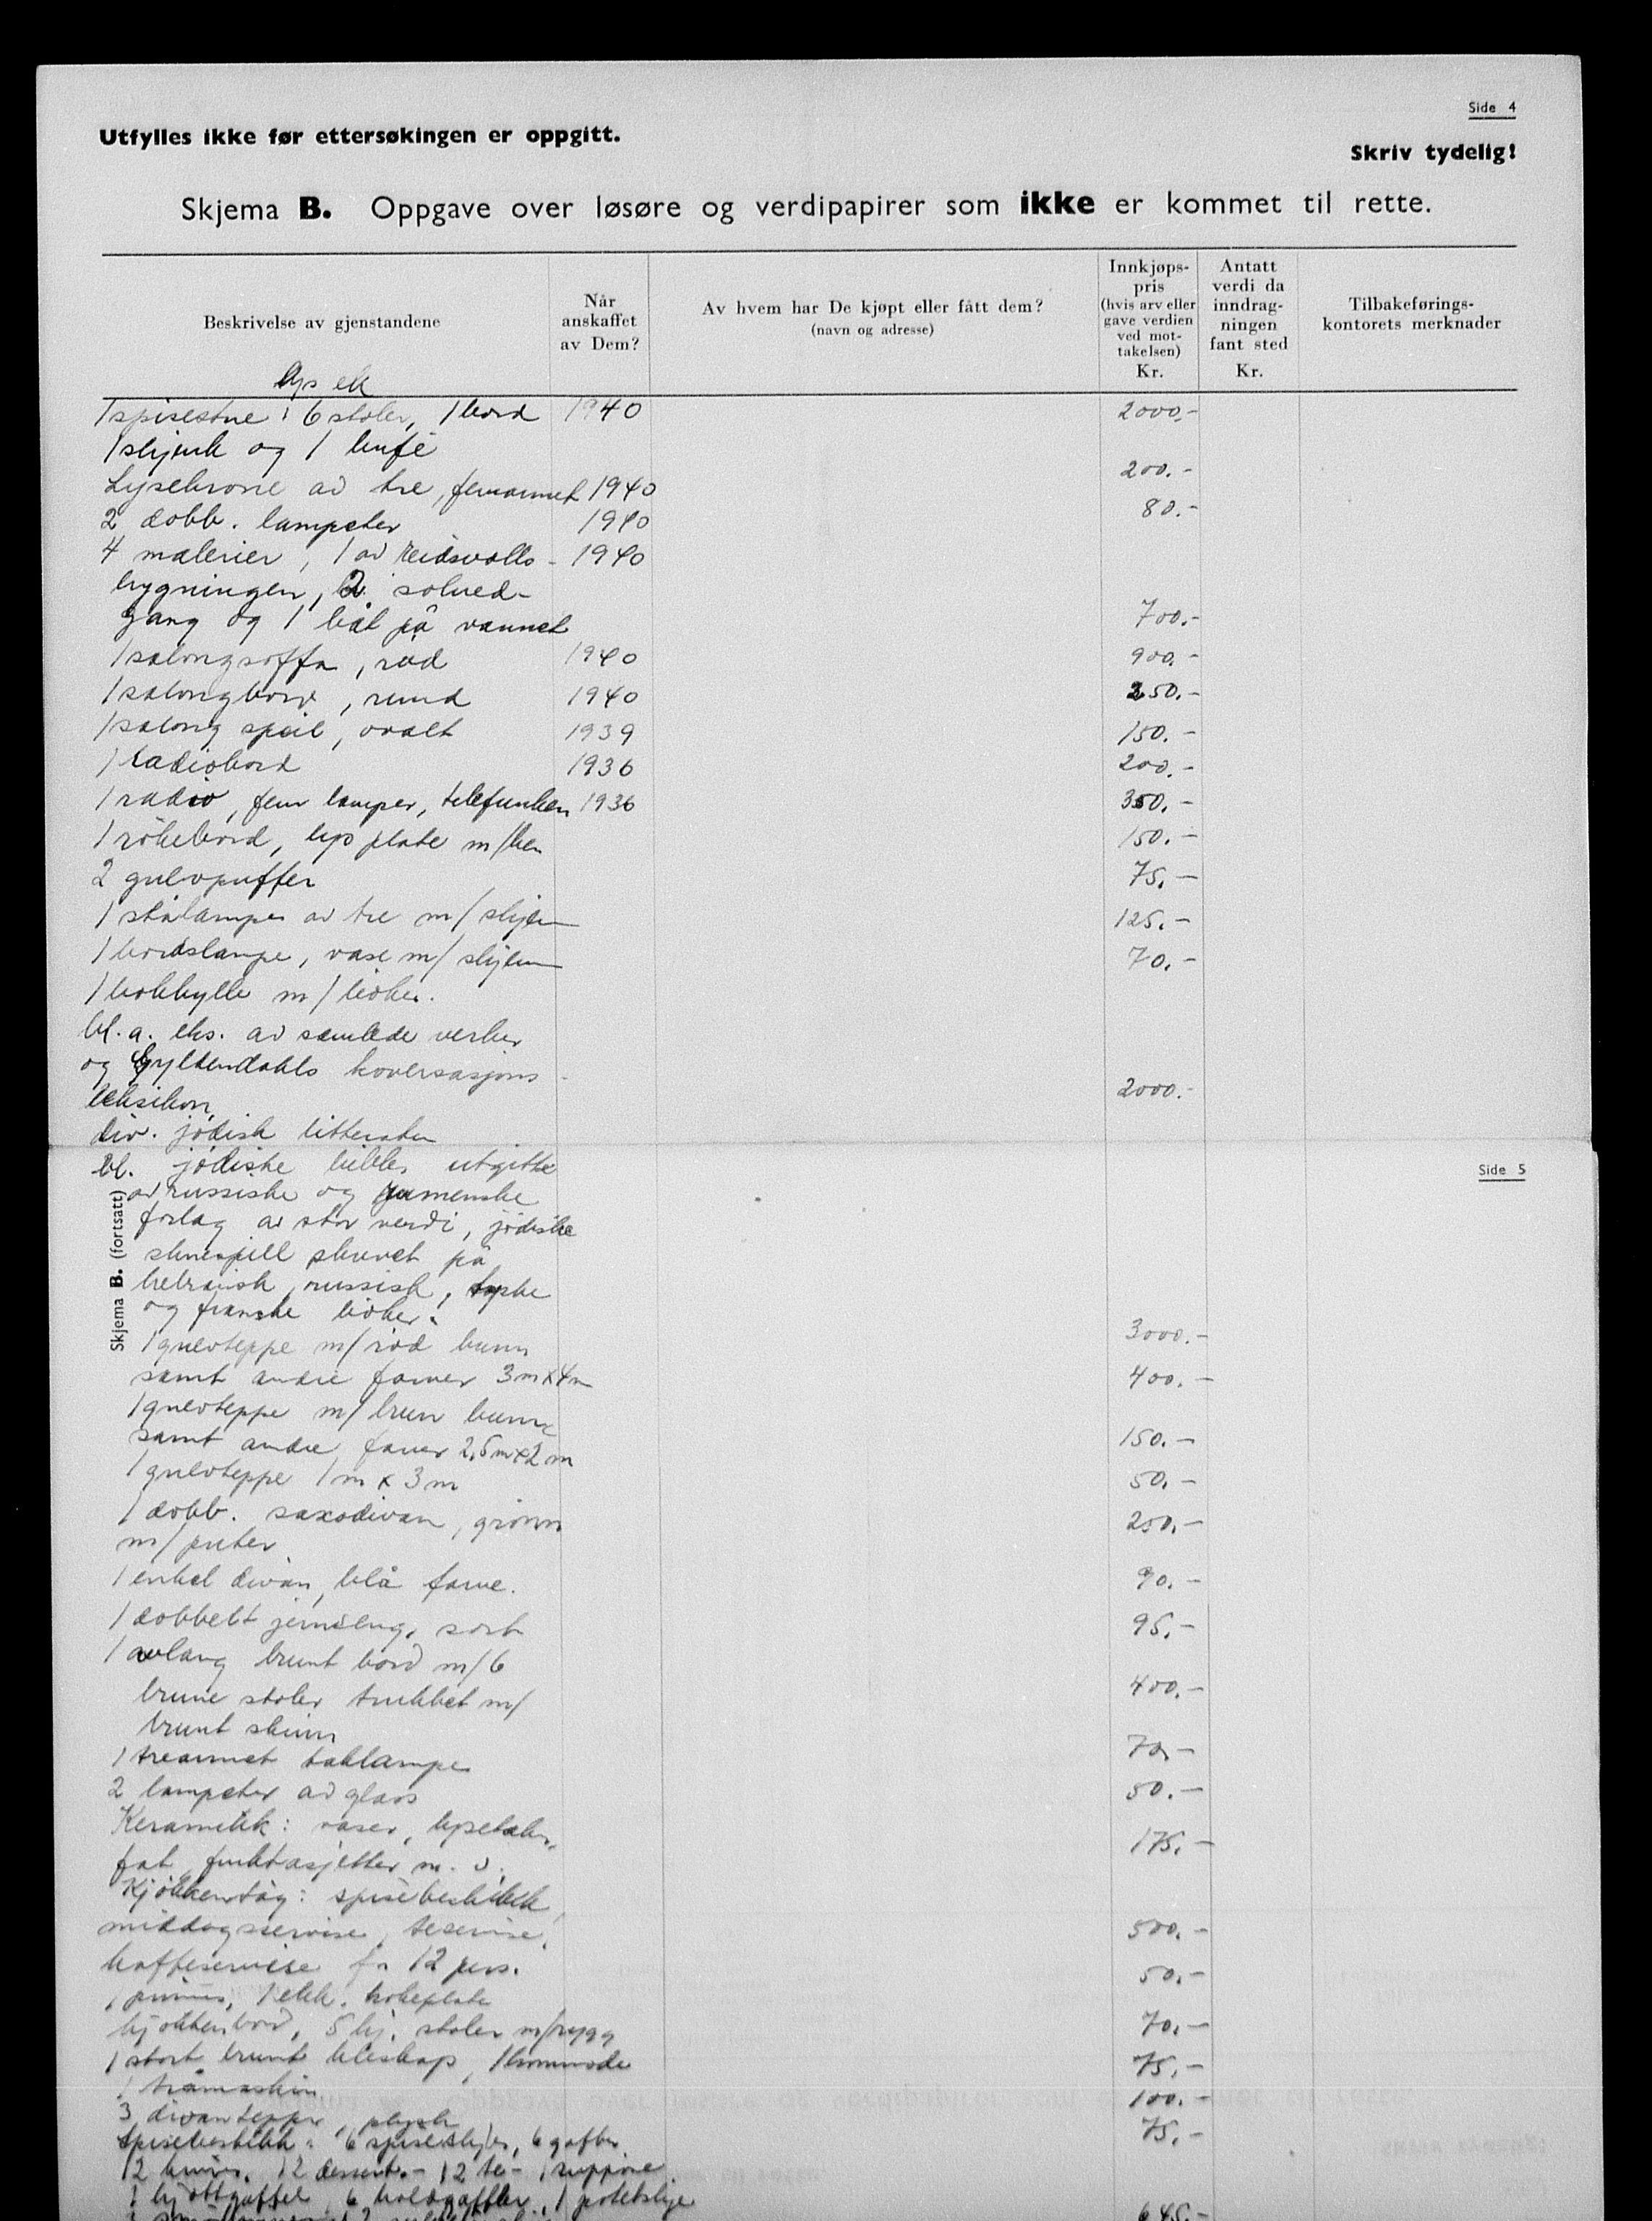 Side 4
Utfylles ikke før ettersøkingen er oppgitt.
Skriv tydelig!
Skjema B. Oppgave over løsøre og verdipapirer som ikke er kommet til rette.
Beskrivelse av gjenstandene
Når anskaffet av Dem?
Av hvem har De kjøpt eller fått dem?
(navn og adresse)
Innkjøps-
pris
(hvis arv eller
gave verdien
ved mot-
takelsen)
Kr.
Antatt
verdi da
inndrag-
ningen
fant sted
Kr.
Tilbakeførings-
kontorets merknader
lys ek
1 spisestue: 6 stoler, 1 bord 1940 2000.-
1 skjenk og 1 bufe
Lysekrone av tre, femarmet 1940 200.-
2 dobb. lampeter 1940 80.-
4 malerier, 1 av Eidsvolls- 1940
bygningen, 2 solned-
gang og 1 båt på vannet 700.-
1 salongsoffa, rød 1940 900.-
1 salongbord, rund 1940 250.-
1 salong speil, ovalt 1939 150.-
1 radiobord 1936 200.-
1 radio, fem lamper, telefunken 1936 350.-
1 rökebord, lys plate m/ben 150.-
2 gulvpuffer 75.-
1 stålampe av tre m/ skjerm 125.-
1 bordslampe, vase m/ skjerm 70.-
1 bokhylle m/ böker.
bl. a. eks. av samlede verker
og Gyldendahls koversasjons-
leksikon, 2000.-
div. jödisk litteratur
bl. jödiske bibler utgitte
Side 5
Skjema B. (fortsatt)
av russiske og rumenske
forlag av stor verdi, jödiske
skuespill skrevet på
hebraisk, russisk, tyske
og franske böker. 3000.-
1 gulvteppe m/ röd bunn
samt andre farver 3 m x 4 m 400.-
1 gulvteppe m/ brun bunn
samt andre farver 2,5 m x 2 m 150.-
1 gulvteppe 1 m x 3 m 50.-
1 dobb. saxodivan, grönn 250.-
m/ puter
1 enkel divan, blå farve. 90.-
1 dobbelt jernseng, sort 95.-
1 avlang brunt bord m/ 6
brune stoler trukket m/ 400.-
brunt skinn
1 trearmet taklampe 70.-
2 lampeter av glass 50.-
Keramikk: vaser, lysestaker,
fat, fruktasjetter m. v. 175.-
Kjökkentöy: spisebestikk,
middagsservise, teservise, 500.-
kaffeservise for 12 pers.
1 primus, 1 elek. kokeplate 50.-
kjökkenbord, 5 kj. stoler m/rygg 70.-
1 stort brunt kleskap, 1 kommode 75.-
1 100.-
3 divantepper, plysh 75.-
Spisebestikk: 6 spiseskjeer, 6 gafler
12 kniver, 12 dessert.- 12 te- 1 suppöse
1 kjöttgaffel, 6 koldgafler, 1 potetskje
645.-